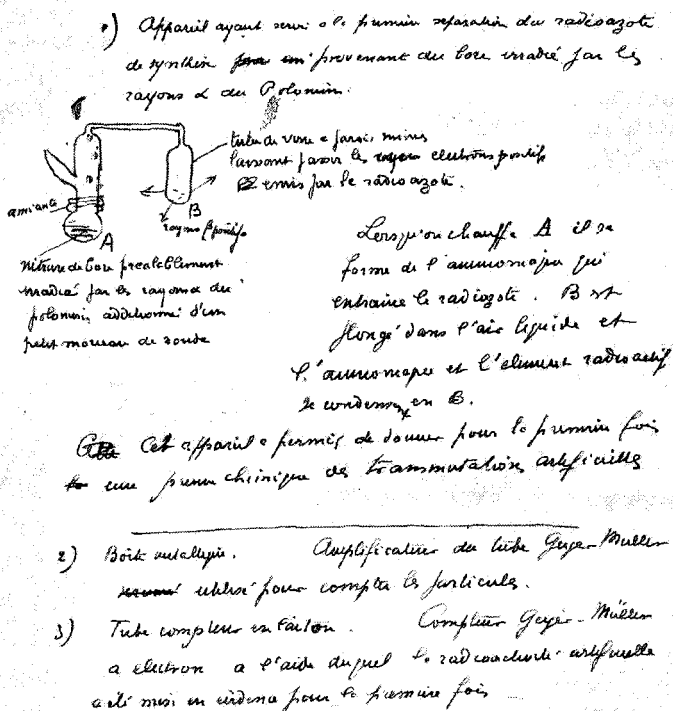 1) Appareil ayant servi à la première séparation du radioazote
de synthèse provenant du bore irradié par les
rayons α du Polonium.
tube de verre à parois minces
laissant passer les electrons positifs
emis par le radio azote.
amiante
A
B
rayons β positifs
Nitrure de bore prealablement
irradié par les rayons α du
polonium, additionné d'un
petit morceau de soude
Lorsqu'on chauffe A il se
forme de l'ammoniaque qui
entraine le radioazote. B est
plongé dans l'air liquide et
l'ammoniaque et l'élément radioactif
se condensent en B.
Cet appareil a permis de donner pour la première fois
une preuve chimique des transmutations artificielles
2) Boite metallique. Amplificateur du tube Geiger-Muller
utilisé pour compter les particules.
3) Tube compteur en laiton. Compteur Geiger-Müller
a electron a l'aide duquel la radioactivité artificielle
a été mise en evidence pour la première fois